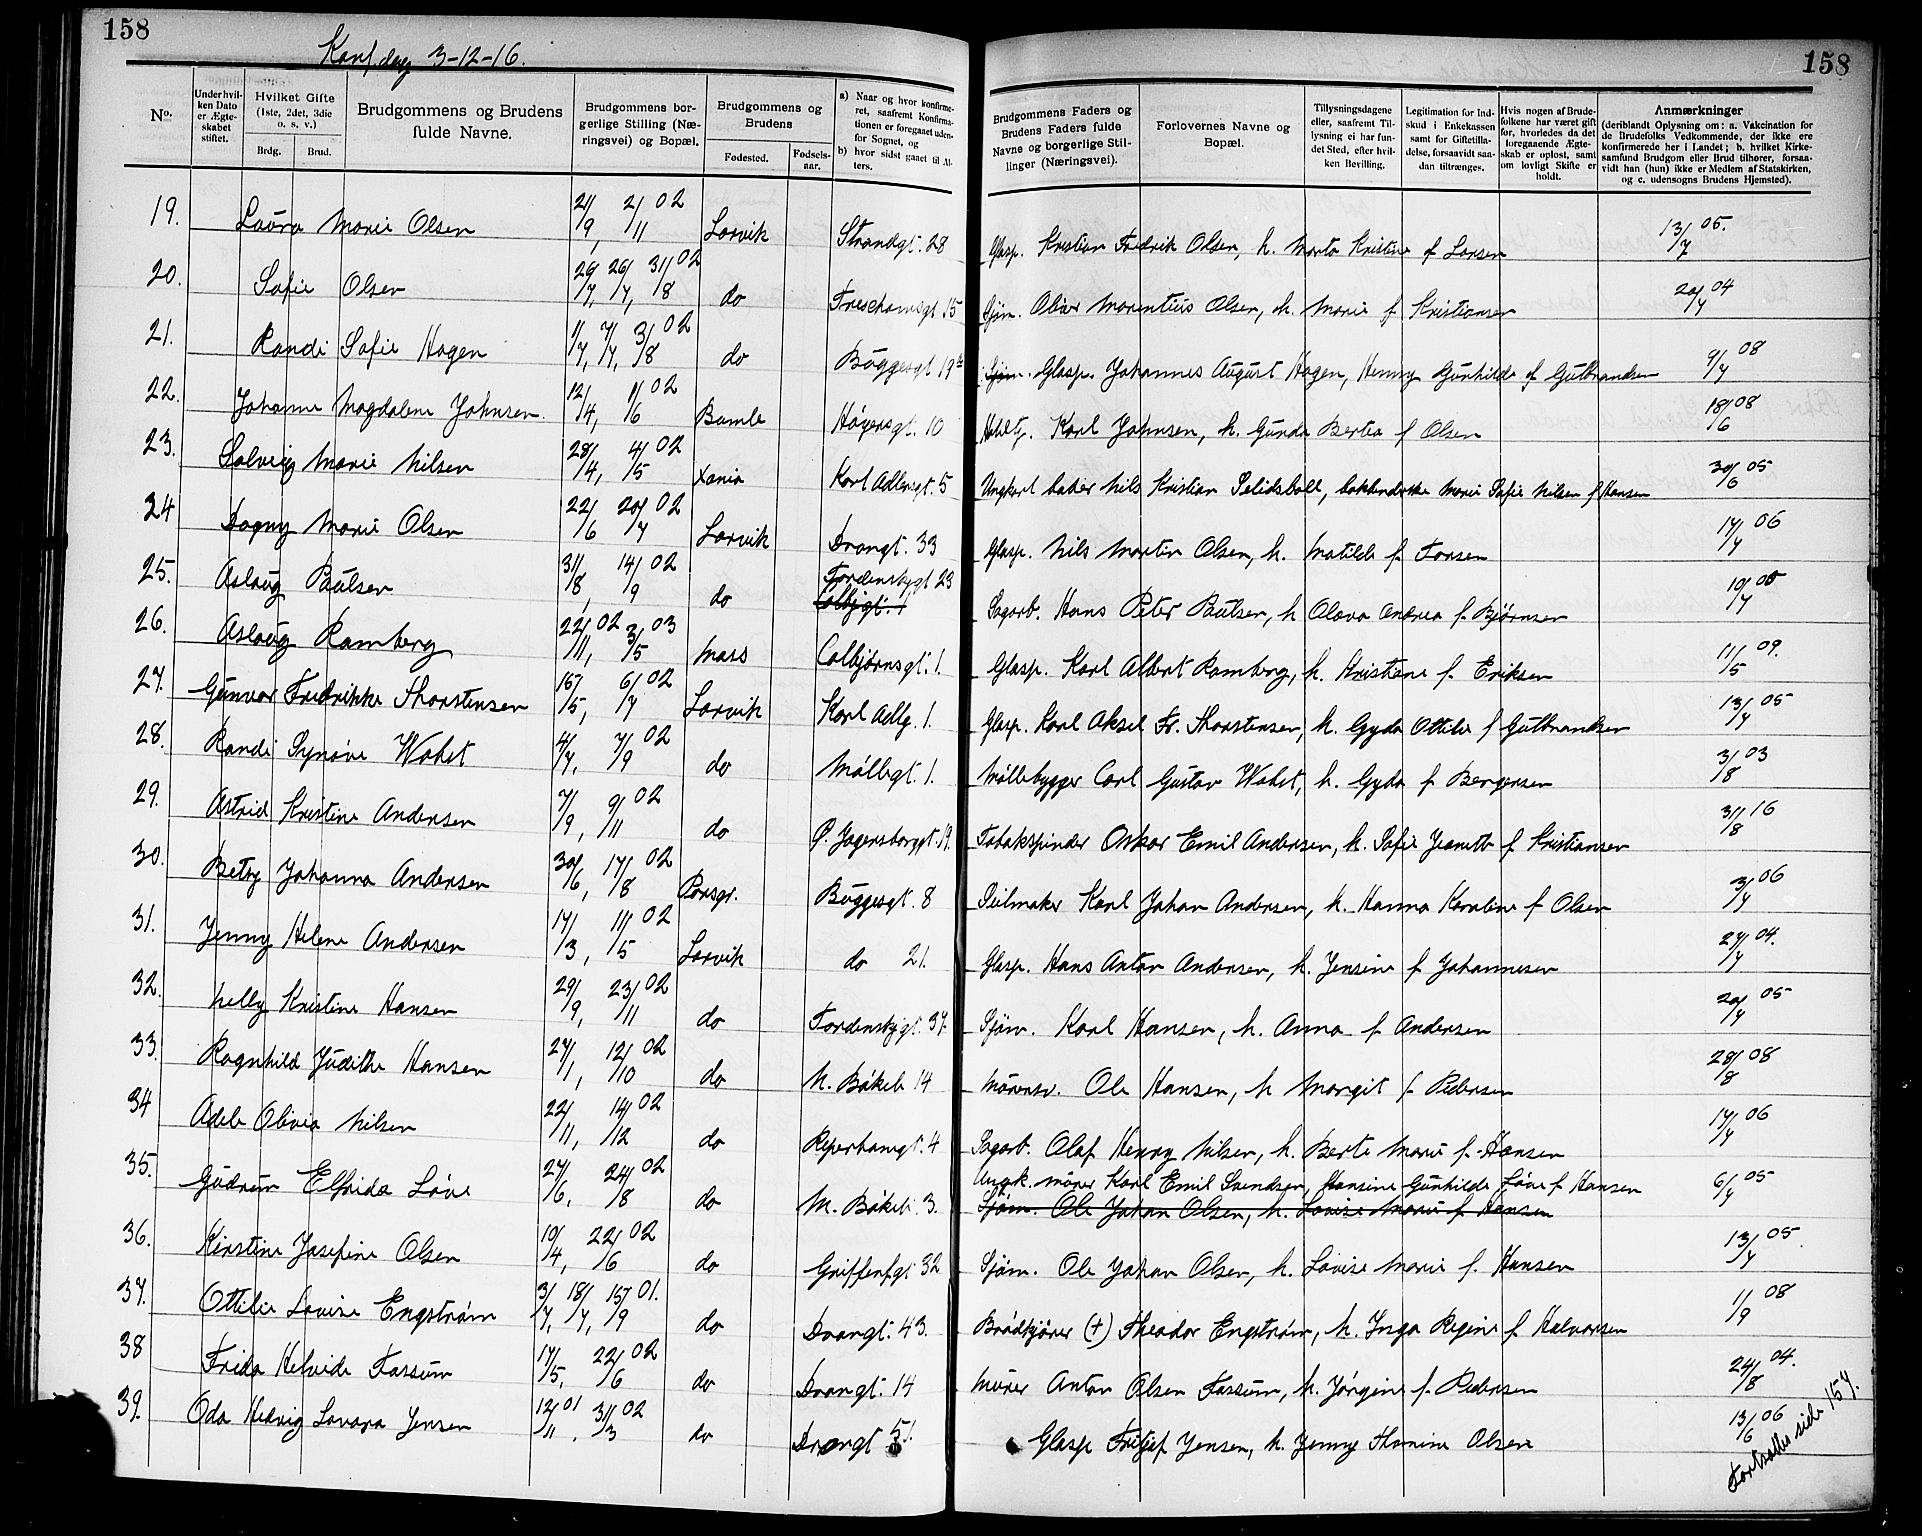 158
Konf. dag 3-12-16.
158
No.
Under hvilken Dato er Ægteskabet stiftet.
Hvilket Gifte (1ste, 2det, 3die o. s. v.)
Brdg.
Brud.
Brudgommens og Brudens fulde Navne.
Brudgommens borgerlige Stilling (Næringsvei) og Bopæl.
Brudgommens og Brudens
Fødested.
Fødselsaar.
a) Naar og hvor konfirmeret, saafremt Konfirmationen er foregaaet udenfor Sognet, og
b) hvor sidst gaaet til Alters.
Brudgommens Faders og Brudens Faders fulde Navne og borgerlige Stillinger (Næringsvei).
Forlovernes Navne og Bopæl.
Tillysningsdagene eller, saafremt Tillysning ei har fundet Sted, efter hvilken Bevilling.
Legitimation for Indskud i Enkekassen samt for Giftetilladelse, forsaavidt saadan tiltrænges.
Hvis nogen af Brudefolkene har været gift før, hvorledes da det foregaaende Ægteskab er opløst, samt om lovligt Skifte er holdt.
Anmærkninger
(deriblandt Oplysning om: a. Vakcination for de Brudefolks Vedkommende, der ikke ere konfirmerede her i Landet; b. hvilket Kirkesamfund Brudgom eller Brud tilhører, forsaavidt han (hun) ikke er Medlem af Statskirken, og c. udensogns Brudens Hjemsted).
19. Laura Marie Olsen 21/9, 2/11 02 Larvik Strandgt. 28 Glasp. Kristian Fredrik Olsen, h. Marta Kristine f Larsen 13/7 05.
20. Sofie Olsen 29/7, 26/7, 31/8 02 do 15 Sjøm. Oliver Marentius Olsen, h. Marie f Kristiansen 20/7 04
21. Randi Sofie Hagen 1/7, 7/7, 3/8 02 do Buggesgt 19b Sjøm. Glasp. Johannes August Hagen, Henny Gunhilde f Gulbrandsen 9/7 08
22. Johanne Magdalene Johnsen. 12/4, 1/6 02 Bamle Høyersgt. 10 Karl Johnsen, h. Gunda Bertea f Olsen 18/6 08
23. Solveig Marie Nilsen 28/4, 4/5 02 Xania Karl Adlersgt. 5 Ungkarl bader Nils Kristian, Marie Sofie Nilsen f Hansen 30/6 05
24 Dagny Marie Olsen 22/6 20/7 02 Larvik Drangt. 33 Glasp. Nils Martin Olsen, h. Matilde f. Torsen 17/7 06
25. Aslaug Paulsen 31/8, 14/9 02 do Tordenskygt 23 Colbjgt. 1 Sagarb. Hans Peter Paulsen, h Olava Andrea f. Bjørnsen 10/7 05
26. Aslaug Ramberg 22/11, 02 3/5 03 Moss Colbjørnsgt. 1. Glasp. Karl Albert Ramberg, h. Kristiane f. Eriksen 11/5 09.
27. Gunvor Fredrikke Thorstensen 15/5, 6/7 02 Larvik Karl Adlg. 1. Glasp. Karl Aksel Fr. Thorstensen, h. Gyda Ottilie f Gulbrandsen 13/7 05
28. Randi Synøve Wahst 4/7, 7/9 02 do Møllegt. 1. Møllebygger Carl Gustav Wahst, h. Gyda f Bergersen 3/8 03
29. Astrid Kristine Andersen 7/9, 9/11 02 do Ø. Jegersborggt. 19. Tobakspinder Oskar Emil Andersen, h. Sofie Jeanette f Kristiansen 31/8 16
30. Betsy Johanna Andersen 30/6, 17/8 02 Porsgr. Buggesgt. 8 Seilmaker Karl Johan Andersen, h. Hanna Karoline f Olsen 3/7 06
31. Jenny Helene Andersen 17/3, 11/5 02 Larvik do 21. Glasp. Hans Anton Andersen, h. Jensine f Johannesen 27/7 04.
32. Nelly Kristine Hansen 29/9, 23/11 02 do Tordenskygt. 37. Sjøm. Karl Hansen, h. Anna f Andersen 20/7 05
33. Ragnhild Judithe Hansen 27/1, 12/10 02 do N. Bøkeli 14 Ole Hansen, h Margit f Pedersen 28/8 08
34 Adele Olivia Nilsen 22/11, 14/12 02 do Reperbangt. 4 Sagarb. Olaf Henry Nilsen, h. Berte Marie f. Hansen 17/7 06
35. Gudrun Elfrida Løve 27/6, 24/8 02 do M. Bøkeli 3. Ungk. murer Karl Emil Svendsen, Hansine Gunhilde Løve f Hansen 6/7 05
Sjøm. Ole Johan Olsen, h. Lovise Marie f Hansen
36. Kirstine Josefine Olsen 10/4, 22/6 02 do Griffenfgt 32 Sjøm. Ole Johan Olsen, h. Lovise Marie f. Hansen 13/7 05.
37. Ottilie Lovise Engstrøm 3/7, 18/7, 15/9 01. do Drangt. 43. Brødkjører (+) Theodor Engstrøm, h. Inga Regine f Halvorsen 1/9 08
38 Frida Helvide Fossum 17/5, 22/6 02 do Drangt. 14 Murer Anton Olsen Fossum, h. Jørgine f. Pedersen 24/8 04.
39. Oda Hedvig Lovara Jensen 12/11 01, 31/3 02 do Drangt 51. Glasp Fritjof Jensen, h. Jenny Olsen 13/6 06
Fortsættes side 157.